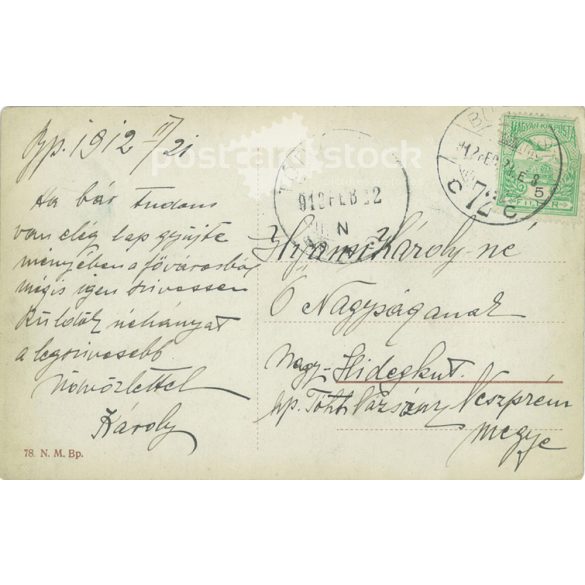 Bp. 1912 II/21
Ha bár tudom
van elég lap gyüjte
ményében a fővárosból
mégis igen szivessen
küldök néhányat
a legszivesebb
üdvözlettel
Károly
78. N. M. Bp.
postcardstock
912 FEB 22
N
BU
912 FEB 21 E 8
72
C C
MAGYAR KIR. POSTA
5
FILLÉR
Károly-né
Ő Nagyságának
Nagy-Hidegkut
up. Tóth Vázsony Veszprém
megye